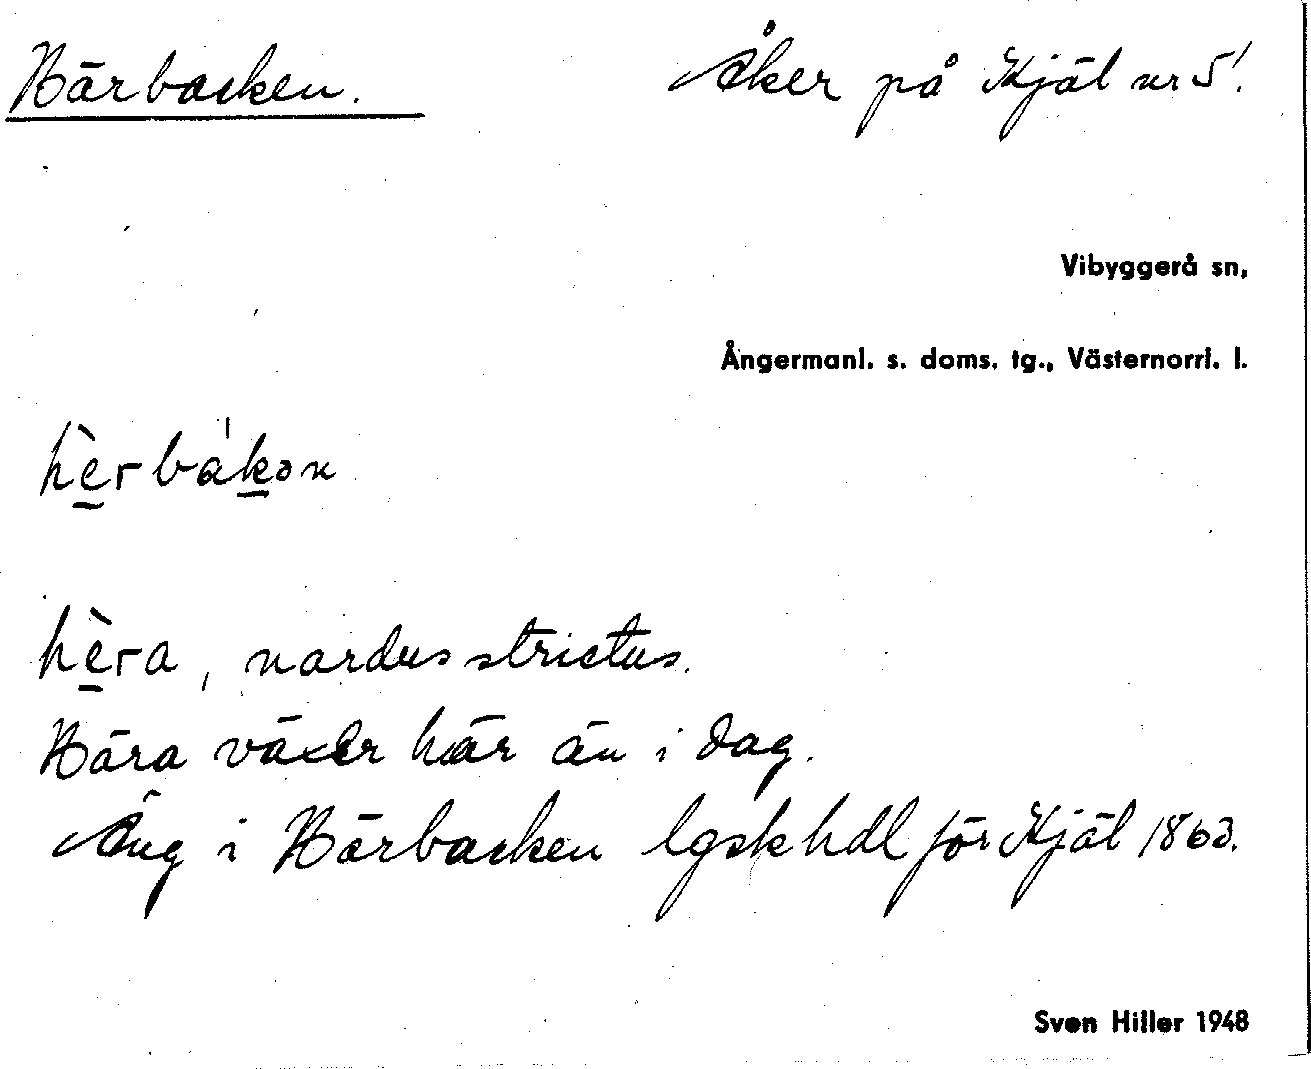 Härbacken. Åker på Kjäl nr 5!
Vibyggerå sn,
Ångermanl. s. doms. tg., Västernorrl. l.
hèrbákən
hèra, nardus strictus.
Hära växer här än i dag.
Äng i Härbacken lgskhdl för Kjäl 1863.
Sven Hiller 1948